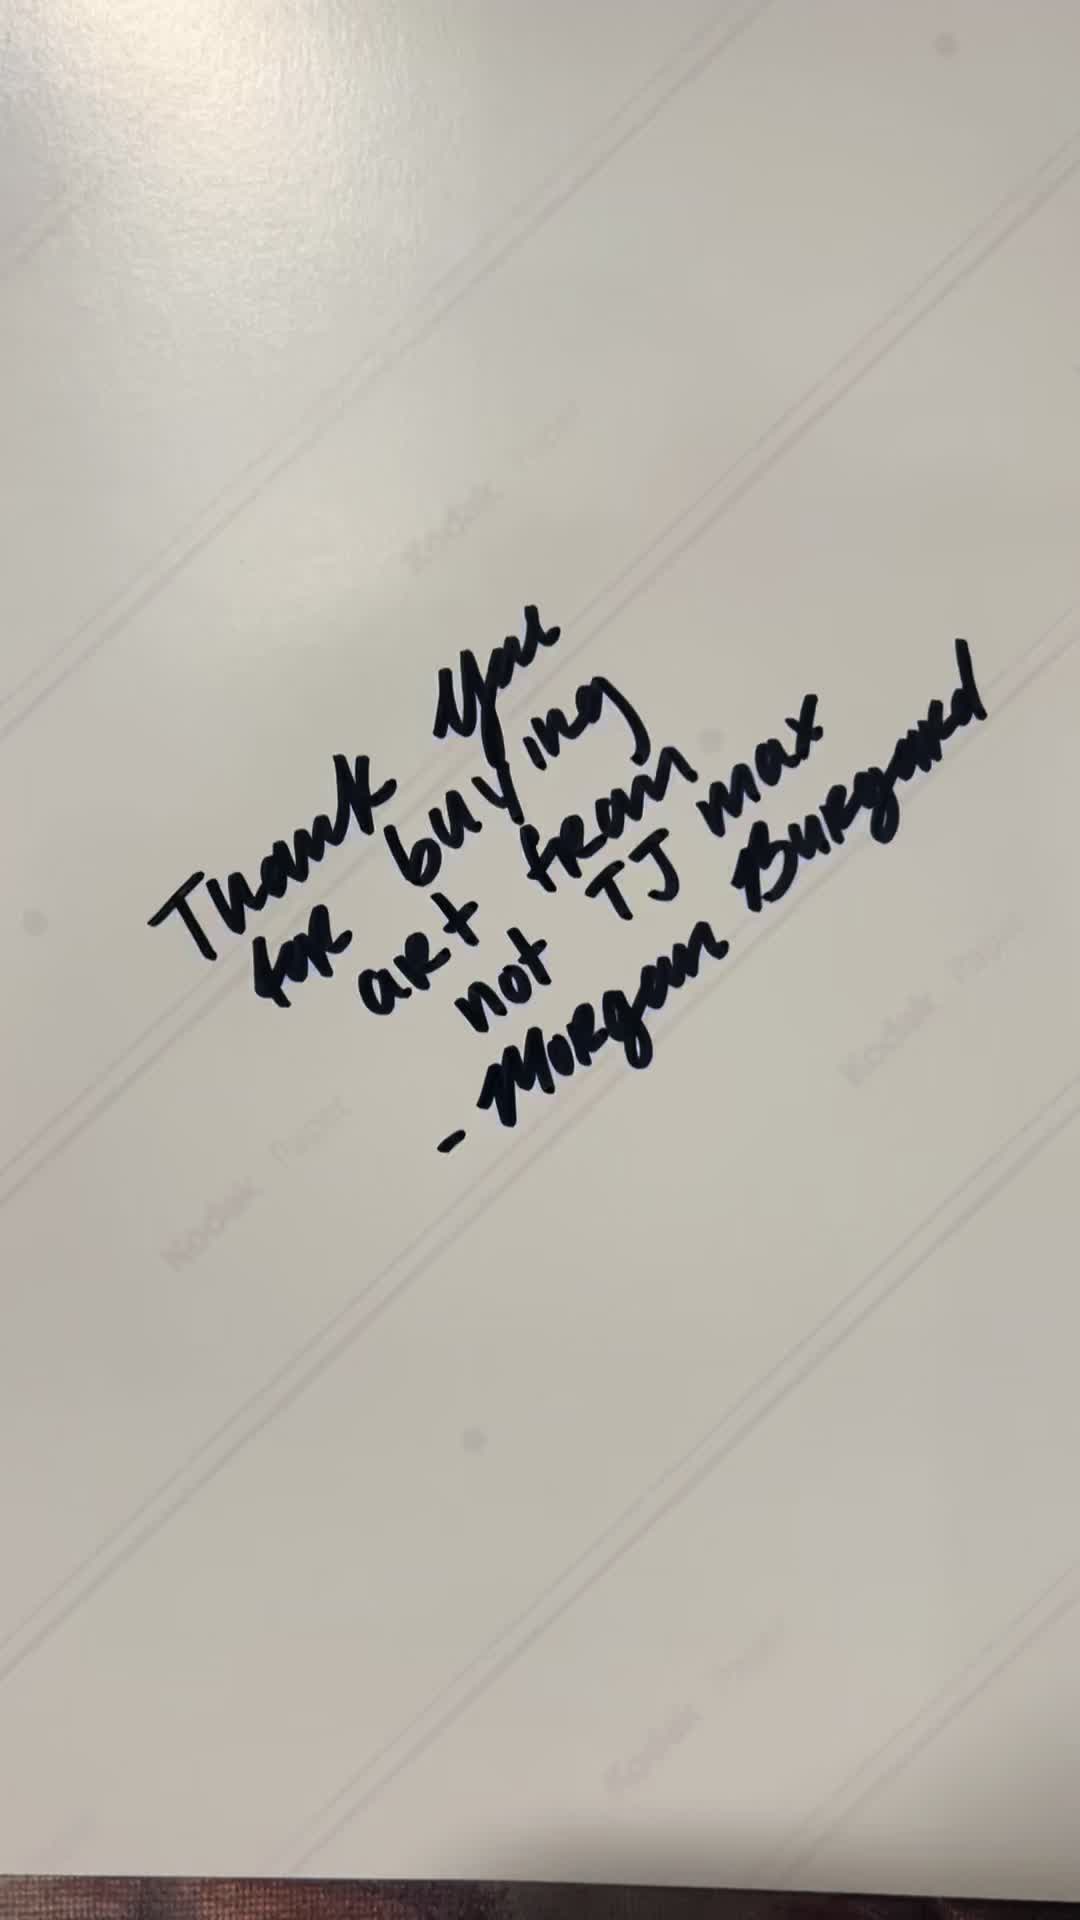 Thank you
for buying
art from
not TJ max
- Morgan Burgard
Kodak Paper
Kodak Paper
Kodak Paper
Kodak Paper